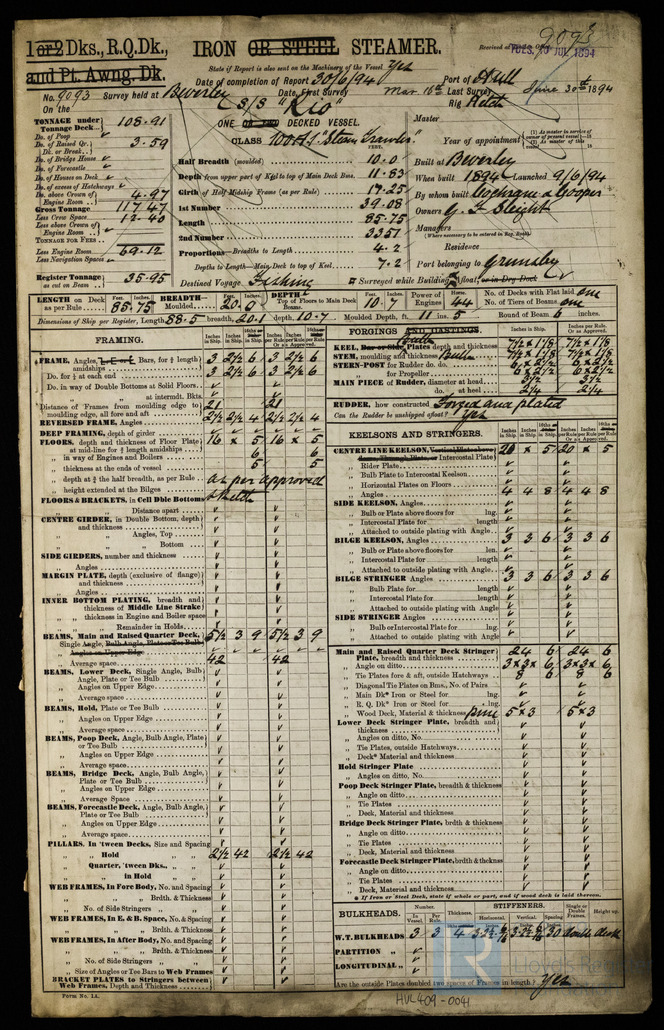 1 or 2 Dks., R.Q.Dk.,
and Pt. Awng. Dk.
IRON OR STEEL STEAMER.
9093
Received at
TUES. 10 JUL 1894
State if Report is also sent on the Machinery of the Vessel Yes
Date of completion of Report 30/6/94 Port of Hull
No. 9093 Survey held at Beverley Date, First Survey Mar 16th Last Survey June 30th 1894
On the S/S "Rio" Rig Ketch
TONNAGE under Tonnage Deck 108.91
Do. of Poop
Do. of Raised Qr. Dk. or Break 3.59
Do. of Bridge House
Do. of Forecastle
Do. of Houses on Deck
Do. of excess of Hatchways
Do. above Crown of Engine Room 4.97
Gross Tonnage 117.47
Less Crew Space 12.40
Less above Crown of Engine Room
TONNAGE FOR FEES
Less Engine Room 69.12
Less Navigation Spaces
Register Tonnage as cut on Beam 35.95
ONE OR TWO DECKED VESSEL.
CLASS 100A1 "Steam Trawler"
FEET.
Half Breadth (moulded) 10.0
Depth from upper part of Keel to top of Main Deck Bms. 11.83
Girth of Half Midship Frame (as per Rule) 17.25
1st Number 39.08
Length 85.75
2nd Number 3351
Proportions—Breadths to Length 4.2
Depths to Length—Main Deck to top of Keel 7.2
Destined Voyage Fishing
Master
Year of appointment
(1) As master in service of owner of present vessel
(2) As master of this vessel
Built at Beverley
When built 1894 Launched 9/6/94
By whom built Cochrane & Cooper
Owners G. F. Sleight
Managers
(Where necessary to be entered in Reg. Book)
Residence
Port belonging to Grimsby
Surveyed while Building, afloat, or in Dry Dock
LENGTH on Deck as per Rule Feet. 85 Inches. .75 BREADTH— Moulded Feet. 20 Inches. 0 DEPTH Top of Floors to Main Deck Beams Feet. 10 Inches. 7 Power of Engines Horse. 44 No. of Decks with Flat laid one
No. of Tiers of Beams one
Dimensions of Ship per Register, Length, 88.5 breadth, 20.1 depth, 10.7 Moulded Depth, ft. 11 ins. 5 Round of Beam 6 inches.
FRAMING.
Inches in Ship.
FRAME, Angles, Bars, for ¾ length amidships 3 2½ 6 3 2½ 6
Do. for ⅛ at each end 3 2½ 6 3 2½ 6
Do. in way of Double Bottoms at Solid Floors
„ „ at intermdt. Bkts.
Distance of Frames from moulding edge to moulding edge, all fore and aft 21 21
REVERSED FRAME, Angles 2½ 2½ 4 2½ 2½ 4
DEEP FRAMING, depth of girder
FLOORS, depth and thickness of Floor Plate at mid-line for ¾ length amidships 16 x 5 16 x 5
„ in way of Engines and Boilers 6 6
„ thickness at the ends of vessel 5 5
„ depth at ¾ the half breadth, as per Rule as per approved
„ height extended at the Bilges sketch
FLOORS & BRACKETS, in Cell Dble Bottoms
„ Distance apart
CENTRE GIRDER, in Double Bottom, depth and thickness
„ „ Angles, Top
„ „ Bottom
SIDE GIRDERS, number and thickness
„ Angles
MARGIN PLATE, depth (exclusive of flange) and thickness
„ Angles
INNER BOTTOM PLATING, breadth and thickness of Middle Line Strake
„ thickness in Engine and Boiler space
„ Remainder in Holds
BEAMS, Main and Raised Quarter Deck, Single Angle, Bulb Angle, Plate or Tee Bulb 5½ 3 9 5½ 3 9
„ Angles on Upper Edge
„ Average space 42 42
BEAMS, Lower Deck, Single Angle, Bulb Angle, Plate or Tee Bulb
„ Angles on Upper Edge
„ Average space
BEAMS, Hold, Plate or Tee Bulb
„ Angles on Upper Edge
„ Average space
BEAMS, Poop Deck, Angle, Bulb Angle, Plate or Tee Bulb
„ Angles on Upper Edge
„ Average space
BEAMS, Bridge Deck, Angle, Bulb Angle, Plate or Tee Bulb
„ Angles on Upper Edge
„ Average Space
BEAMS, Forecastle Deck, Angle, Bulb Angle, Plate or Tee Bulb
„ Angles on Upper Edge
„ Average space
PILLARS, In 'tween Decks, Size and Spacing
„ Hold „ „ 2½ 42 2½ 42
„ Quarter, 'tween Dks., „ „
„ in Hold „ „
WEB FRAMES, In Fore Body, No. and Spacing
„ „ Brdth. & Thickness
„ No. of Side Stringers
WEB FRAMES, In E. & B. Space, No. & Spacing
„ „ Brdth. & Thickness
WEB FRAMES, In After Body, No. and Spacing
„ „ Brdth. & Thickness
„ No. of Side Stringers
„ Size of Angles or Tee Bars to Web Frames
BRACKET PLATES to Stringers between Web Frames, Depth and Thickness
Form No. 1A.
FORGINGS AND CASTINGS.
Inches in Ship.
Inches per Rule. Or as Approved.
KEEL, Bar or Side Plates depth and thickness 7½ x 1⅛ 7½ x 1⅛
STEM, moulding and thickness Bulb 7½ x 1⅛ 7½ x 1⅛
STERN-POST for Rudder do. do. 6 x 2½ 6 x 2½
„ for Propeller 6 x 2½ 6 x 2½
MAIN PIECE of Rudder, diameter at head 3½ 3½
do. at heel 2¼ 2¼
RUDDER, how constructed Forged and plated
Can the Rudder be unshipped afloat? Yes
KEELSONS AND STRINGERS.
CENTRE LINE KEELSON, Vertical Plate above floors, Through Plate, or Intercostal Plate 20 x 5 20 x 5
„ Rider Plate
„ Bulb Plate to Intercostal Keelson
„ Horizontal Plates on Floors
„ Angles 4 4 8 4 4 8
SIDE KEELSON, Angles
„ Bulb or Plate above floors for lng.
„ Intercostal Plate for length
„ Attached to outside plating with Angle
BILGE KEELSON, Angles 3 3 6 3 3 6
„ Bulb or Plate above floors for len.
„ Intercostal Plate for length
„ Attached to outside plating with Angle
BILGE STRINGER Angles 3 3 6 3 3 6
„ Bulb Plate for length
„ Intercostal Plate for length
„ Attached to outside plating with Angle
SIDE STRINGER Angles
„ Bulb or Intercostal Plate for lng.
„ Attached to outside plating with Angle
Main and Raised Quarter Deck Stringer Plate, breadth and thickness 24 6 24 6
„ Angles on ditto 3 x 3 x 6 3 x 3 x 6
„ Tie Plates fore & aft, outside Hatchways 8 6 8 6
„ Diagonal Tie Plates on Bms., No. of Pairs
„ Main Dk* Iron or Steel for lng.
„ R. Q. Dk* Iron or Steel for lng.
„ Wood Deck, Material & thickness Pine 5 x 3 5 x 3
Lower Deck Stringer Plate, breadth and thickness
„ Angles on ditto, No.
„ Tie Plates, outside Hatchways
„ Deck* Material and thickness
Hold Stringer Plate
„ Angles on ditto, No.
Poop Deck Stringer Plate, breadth & thickness
„ Angles on ditto
„ Tie Plates
„ Deck, Material and thickness
Bridge Deck Stringer Plate, brdth & thickness
„ Angle on ditto
„ Tie Plates
„ Deck, Material and thickness
Forecastle Deck Stringer Plate, brdth & thcknss
„ Angle on ditto
„ Tie Plates
„ Deck, Material and thickness
* If Iron or Steel Deck, state if whole or part, and if wood deck is laid thereon.
BULKHEADS. Number. In Vessel. Per Rule. Thickness. STIFFENERS. Horizontal. Vertical. Spacing. Single or Double Frames. Height up.
W.T. BULKHEADS 3 3 30 double deck
PARTITION
LONGITUDINAL
Are the outside Plates doubled two spaces of Frames in length? Yes
HUL409-0041